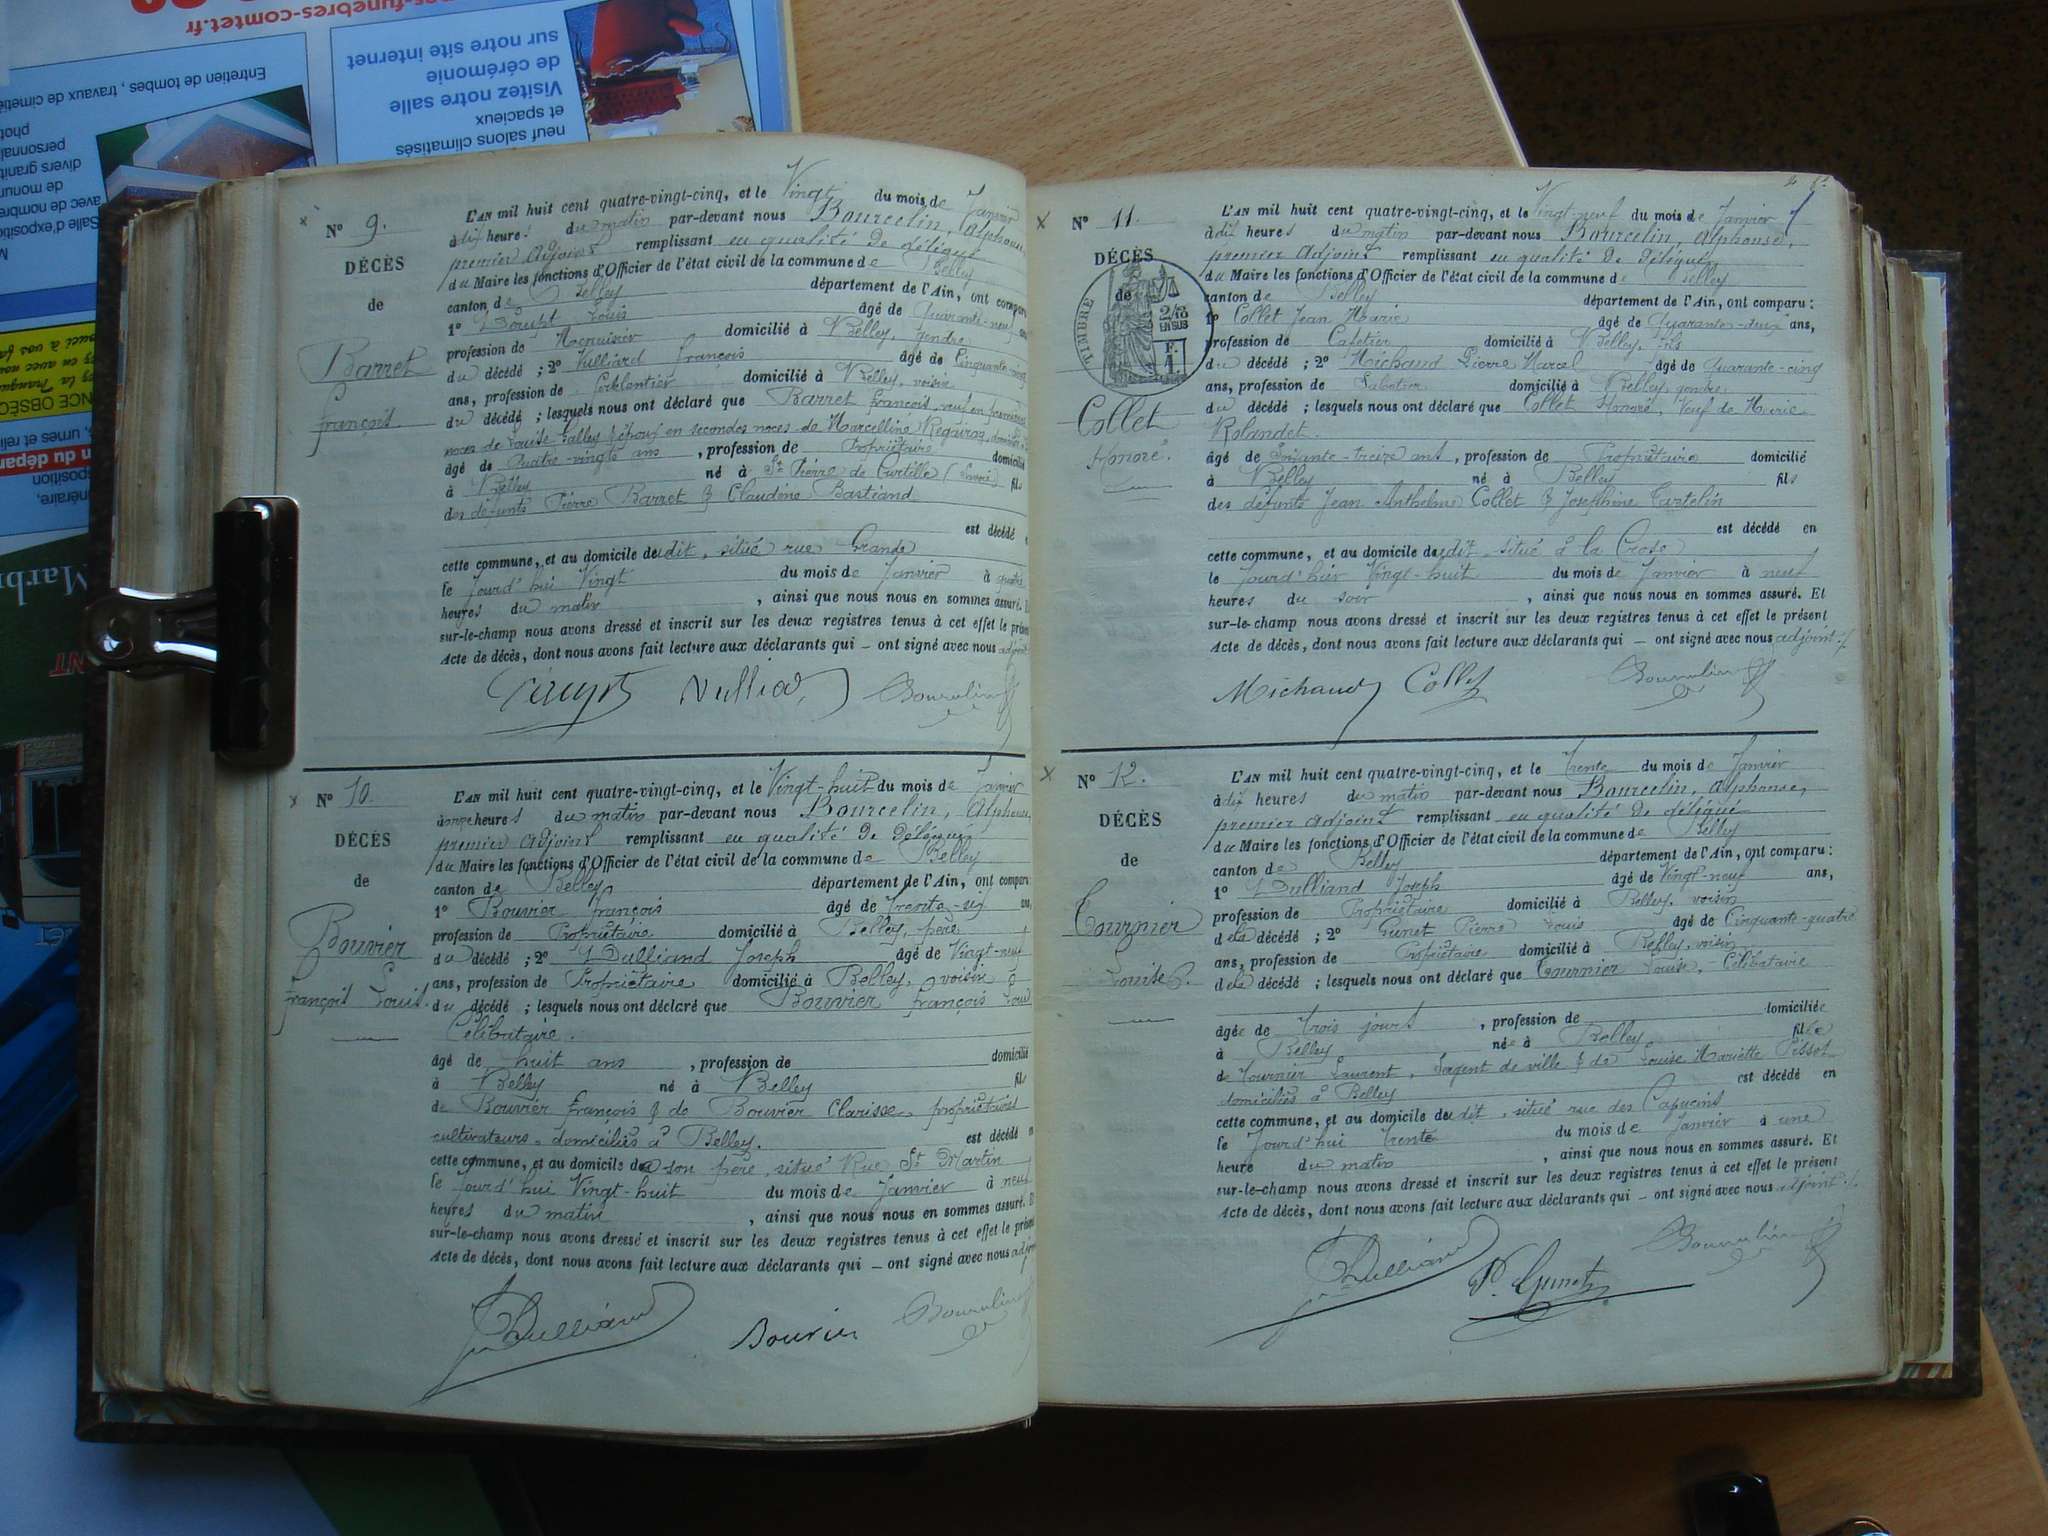 nes-funebres-comtet.fr
Entretien de tombes, travaux de cimetiè
sur notre site internet
de cérémonie
Visitez notre salle
et spacieux
neuf salons climatisés
N° 9.
DÉCÈS
de
Barret
françois
L'AN mil huit cent quatre-vingt-cinq, et le Vingt du mois de Janvier
à dix heures du matin par-devant nous Bourcelin, Alphonse,
premier Adjoint remplissant en qualité de délégué
du Maire les fonctions d'Officier de l'état civil de la commune de Belley
canton de Belley département de l'Ain, ont comparu
1° Louis âgé de Quarante-neuf ans
profession de Menuisier domicilié à Belley, gendre
du décédé ; 2° Vulliard françois âgé de Cinquante
ans, profession de ferblantier domicilié à Belley, voisin
du décédé ; lesquels nous ont déclaré que Barret françois, veuf en premières
noces de Louise & époux en secondes noces de Marcelline
âgé de Quatre-vingts ans, profession de Propriétaire domicilié
à Belley né à St Pierre de Curtille (Savoie) fils
des défunts Pierre Barret & Claudine Bastiand
est décédé
cette commune, et au domicile du dit, situé rue Grande
le jourd'hui Vingt du mois de Janvier à quatre
heures du matin, ainsi que nous nous en sommes assuré.
sur-le-champ nous avons dressé et inscrit sur les deux registres tenus à cet effet le présent
Acte de décès, dont nous avons fait lecture aux déclarants qui — ont signé avec nous adjoint
Vulliard Bourcelin
N° 10.
DÉCÈS
de
Bouvier
françois Louis.
L'AN mil huit cent quatre-vingt-cinq, et le Vingt-huit du mois de Janvier
à onze heures du matin par-devant nous Bourcelin, Alphonse
premier Adjoint remplissant en qualité de Délégué
du Maire les fonctions d'Officier de l'état civil de la commune de Belley
canton de Belley département de l'Ain, ont comparu
1° Bouvier françois âgé de trente-six ans
profession de Propriétaire domicilié à Belley, père
du décédé ; 2° Dulliand Joseph âgé de Vingt-neuf
ans, profession de Propriétaire domicilié à Belley, voisin
du décédé ; lesquels nous ont déclaré que Bouvier françois Louis
Célibataire.
âgé de huit ans, profession de domicilié
à Belley né à Belley fils
de Bouvier françois & de Bouvier Clarisse, propriétaires
cultivateurs, domiciliés à Belley. est décédé en
cette commune, et au domicile de son père, situé Rue St Martin
le jourd'hui Vingt-huit du mois de Janvier à neuf
heures du matin, ainsi que nous nous en sommes assuré. Et
sur-le-champ nous avons dressé et inscrit sur les deux registres tenus à cet effet le présent
Acte de décès, dont nous avons fait lecture aux déclarants qui — ont signé avec nous adjoint
J Dulliand Bouvier Bourcelin
N° 11.
DÉCÈS
de
TIMBRE
2/10
EN SUS
F.
1.
Collet
Honoré.
L'AN mil huit cent quatre-vingt-cinq, et le Vingt-neuf du mois de Janvier
à dix heures du matin par-devant nous Bourcelin, Alphonse,
premier Adjoint remplissant en qualité de délégué
du Maire les fonctions d'Officier de l'état civil de la commune de Belley
canton de Belley département de l'Ain, ont comparu :
1° Collet Jean Marie âgé de Quarante-deux ans,
profession de Cafetier domicilié à Belley, fils
du décédé ; 2° Michaud Pierre Marcel âgé de Quarante-cinq
ans, profession de Sabotier domicilié à Belley, gendre
du décédé ; lesquels nous ont déclaré que Collet Honoré, Veuf de Marie
Rolandet.
âgé de Soixante-treize ans, profession de Propriétaire domicilié
à Belley né à Belley fils
des défunts Jean Anthelme Collet & Josephine
est décédé en
cette commune, et au domicile du dit, situé à la Croze
le jourd'hier Vingt-huit du mois de Janvier à neuf
heures du soir, ainsi que nous nous en sommes assuré. Et
sur-le-champ nous avons dressé et inscrit sur les deux registres tenus à cet effet le présent
Acte de décès, dont nous avons fait lecture aux déclarants qui — ont signé avec nous adjoint ./.
Michaud Collet Bourcelin
N° 12.
DÉCÈS
de
Tournier
Louise.
L'AN mil huit cent quatre-vingt-cinq, et le Trente du mois de Janvier
à dix heures du matin par-devant nous Bourcelin, Alphonse,
premier adjoint remplissant en qualité de délégué
du Maire les fonctions d'Officier de l'état civil de la commune de Belley
canton de Belley département de l'Ain, ont comparu :
1° Dulliand Joseph âgé de Vingt-neuf ans,
profession de Propriétaire domicilié à Belley, voisin
de la décédée ; 2° Gunet Pierre Louis âgé de Cinquante-quatre
ans, profession de Propriétaire domicilié à Belley, voisin
de la décédée ; lesquels nous ont déclaré que Tournier Louise, Célibataire
âgée de trois jours, profession de domiciliée
à Belley née à Belley fille
de Tournier Laurent, Sergent de ville & de Louise Mariette Pissot
domiciliés à Belley est décédé en
cette commune, et au domicile du dit, situé rue des Capucins
le jourd'hui trente du mois de Janvier à une
heure du matin, ainsi que nous nous en sommes assuré. Et
sur-le-champ nous avons dressé et inscrit sur les deux registres tenus à cet effet le présent
Acte de décès, dont nous avons fait lecture aux déclarants qui — ont signé avec nous adjoint ./.
J Dulliand P. Gunet Bourcelin